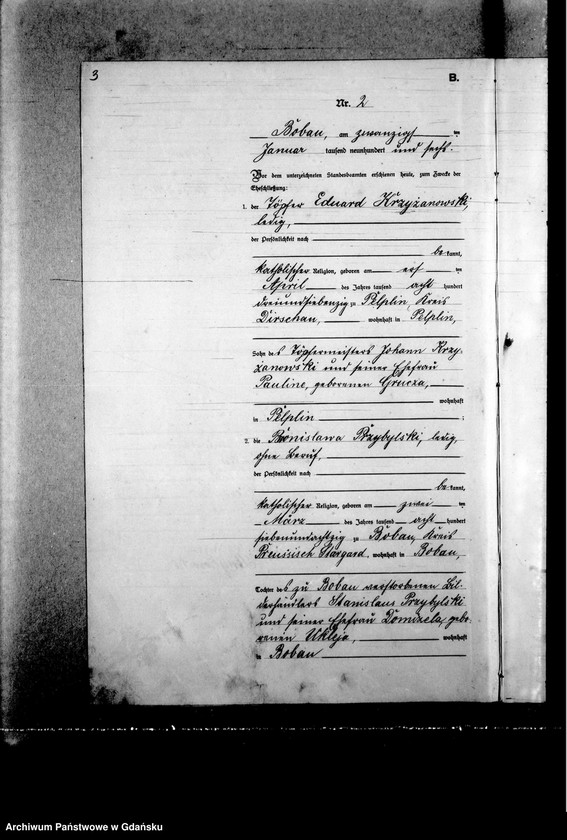 3
B.
Nr. 2
Bobau, am zwanzigsten
Januar tausend neunhundert und sechs.
Vor dem unterzeichneten Standesbeamten erschienen heute, zum Zwecke der
Eheschließung:
1. der Töpfer Eduard Krzyżanowski,
ledig,
der Persönlichkeit nach
be kannt,
katholischer Religion, geboren am
April des Jahres tausend acht hundert
dreiundsiebenzig zu Pelplin, Kreis
Dirschau, wohnhaft in Pelplin,
Sohn des Töpfermeisters Johann Krzy-
żanowski und seiner Ehefrau
Pauline, geborenen Grucza,
wohnhaft
in Pelplin ;
2. die Bronislawa Przybylski, ledig,
ohne Beruf,
der Persönlichkeit nach
be kannt,
katholischer Religion, geboren am zwei ten
März des Jahres tausend acht hundert
siebenundachtzig zu Bobau, Kreis
Preussisch Stargard, wohnhaft in Bobau,
Tochter des zu Bobau verstorbenen Bil-
derhändlers Stanislaus Przybylski
und seiner Ehefrau Dominela, gebo-
renen Ukleja, wohnhaft
in Bobau
Archiwum Państwowe w Gdańsku